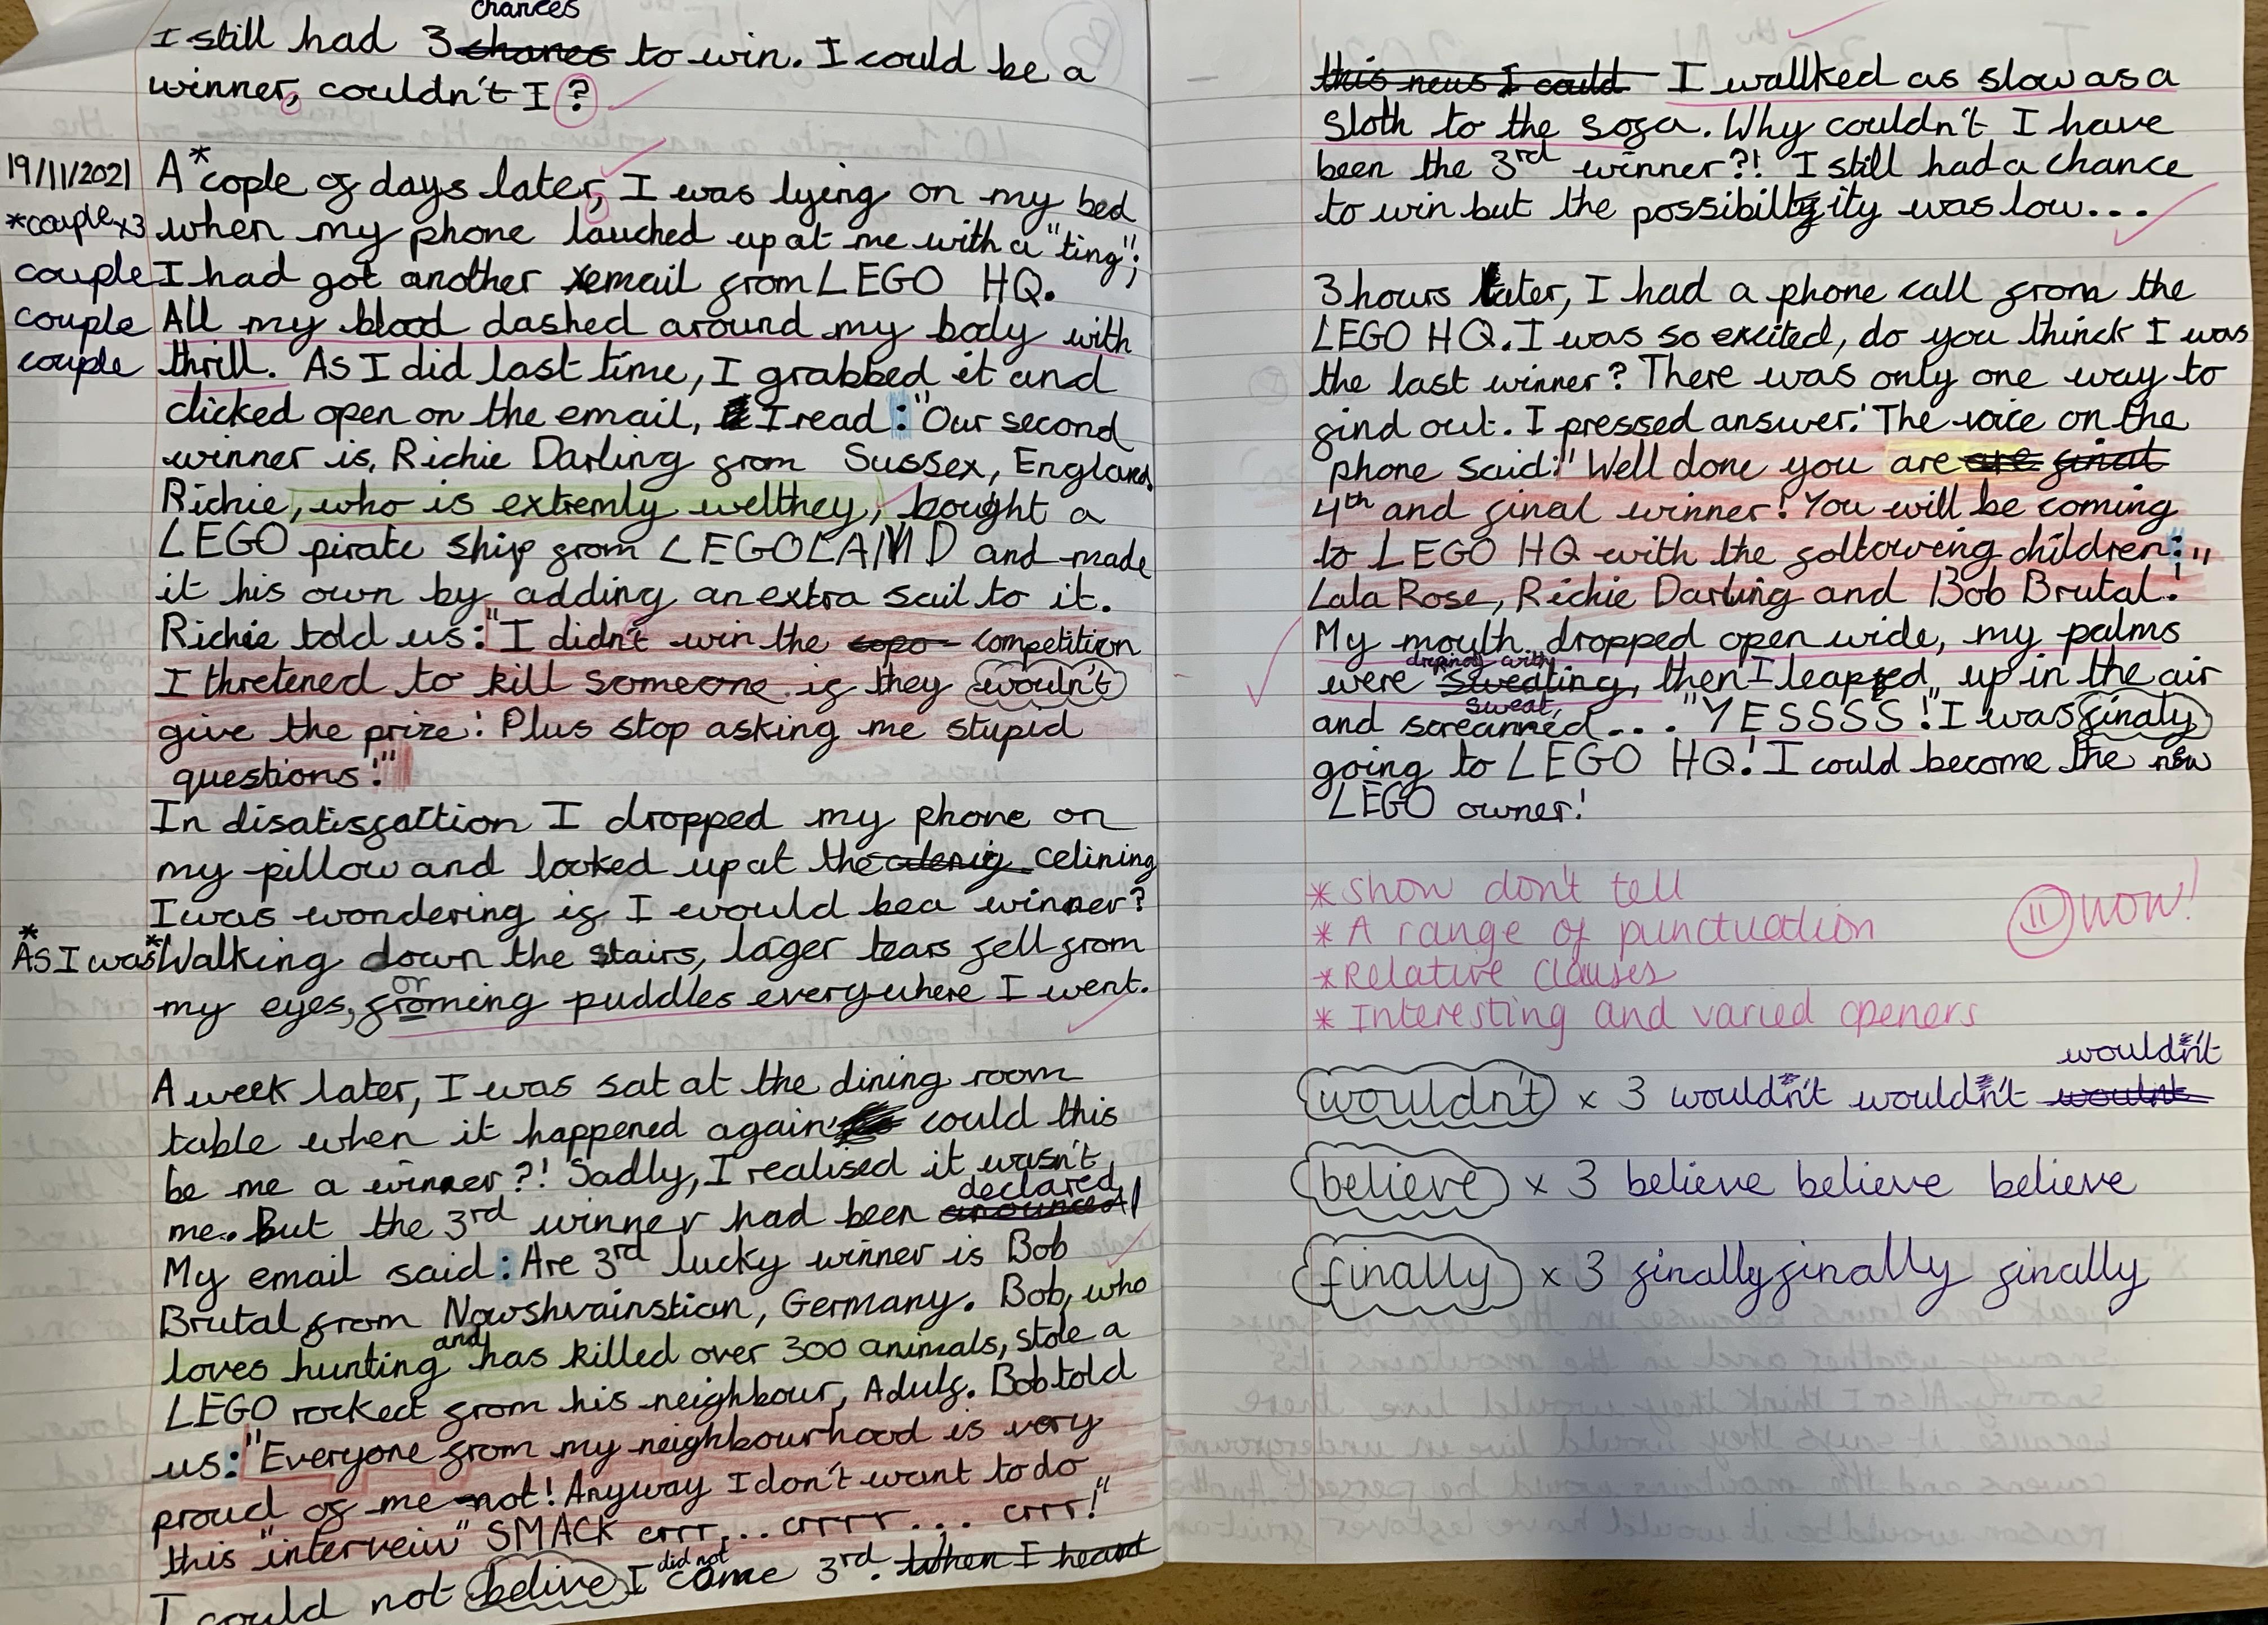 chances
I still had 3 chanes to win. I could be a
winner, couldn't I?
19/11/2021
*couple x3
couple
couple
couple
A* cople of days later, I was lying on my bed
when my phone lauched up at me with a "ting";
I had got another email from LEGO HQ.
All my blood dashed around my body with
thrill. As I did last time, I grabbed it and
clicked open on the email, I read: "Our second
winner is, Richie Darling from Sussex, England.
Richie, who is extremly welthey, bought a
LEGO pirate ship from LEGOLAND and made
it his own by adding an extra sail to it.
Richie told us: "I didn't win the copo competition
I thretened to kill someone if they wouln't
give the prize! Plus stop asking me stupid
questions!"
In disatisfaction I dropped my phone on
my pillow and looked up at the celining
I was wondering if I would be a winner?
*As I was *Walking down the stairs, lager tears fell from
or
my eyes, froming puddles everywhere I went.
A week later, I was sat at the dining room
table when it happened again could this
be me a winner?! Sadly, I realised it wasn't
declared
me. But the 3rd winner had been anounced
My email said: Are 3rd lucky winner is Bob
Brutal from Nowshvainstian, Germany. Bob, who
and
loves hunting has killed over 300 animals, stole a
LEGO rocked from his neighbour, Adulf. Bob told
us: "Everyone from my neighbourhood is very
proud of me not! Anyway I don't want to do
this "interveiw" SMACK crrr... crrrr... crrr!"
did not
I could not belive I come 3rd. When I heard
this news I could I wallked as slow as a
sloth to the sofa. Why couldn't I have
been the 3rd winner?! I still had a chance
to win but the possibiltyity was low...
3 hours later, I had a phone call from the
LEGO HQ. I was so excited, do you thinck I was
the last winner? There was only one way to
find out. I pressed answer. The voice on the
phone said: "Well done you are are finat
4th and final winner! You will be coming
to LEGO HQ with the following children:"
Lala Rose, Richie Darling and Bob Brutal!
My mouth dropped open wide, my palms
driping with
were sweating, then I leapted up in the air
sweat,
and screamed... "YESSSS!" I was finaly
going to LEGO HQ! I could become the new
LEGO owner!
* Show don't tell
* A range of punctuation
* Relative clauses
* Interesting and varied openers
WOW!
wouldn't
wouldn't x 3 wouldn't wouldn't woulnt
believe x 3 believe believe believe
finally x 3 finally finally finally